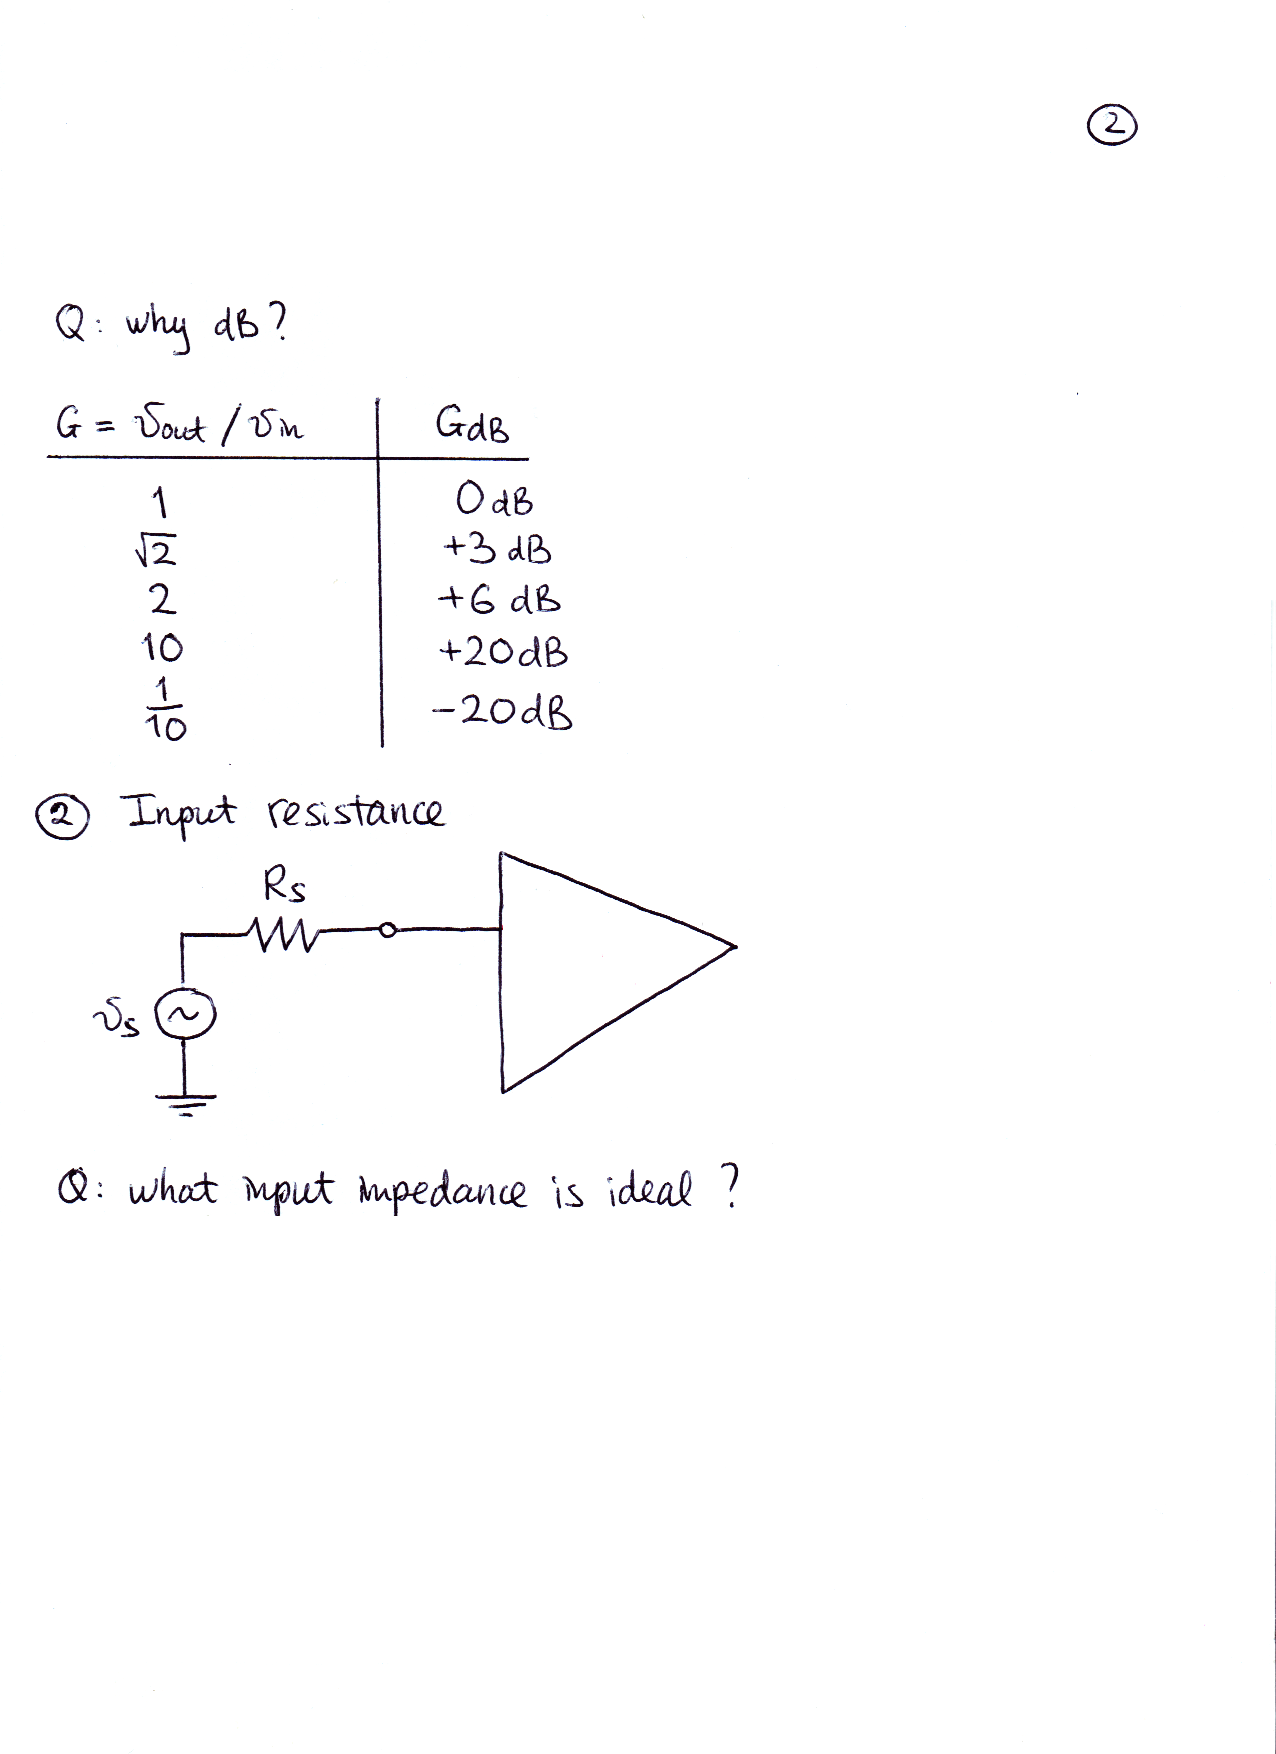 ②
Q: why dB?
G = vout / vin | GdB
1 | 0 dB
√2 | +3 dB
2 | +6 dB
10 | +20dB
1/10 | -20dB
② Input resistance
Rs
vs
~
Q: what input impedance is ideal ?